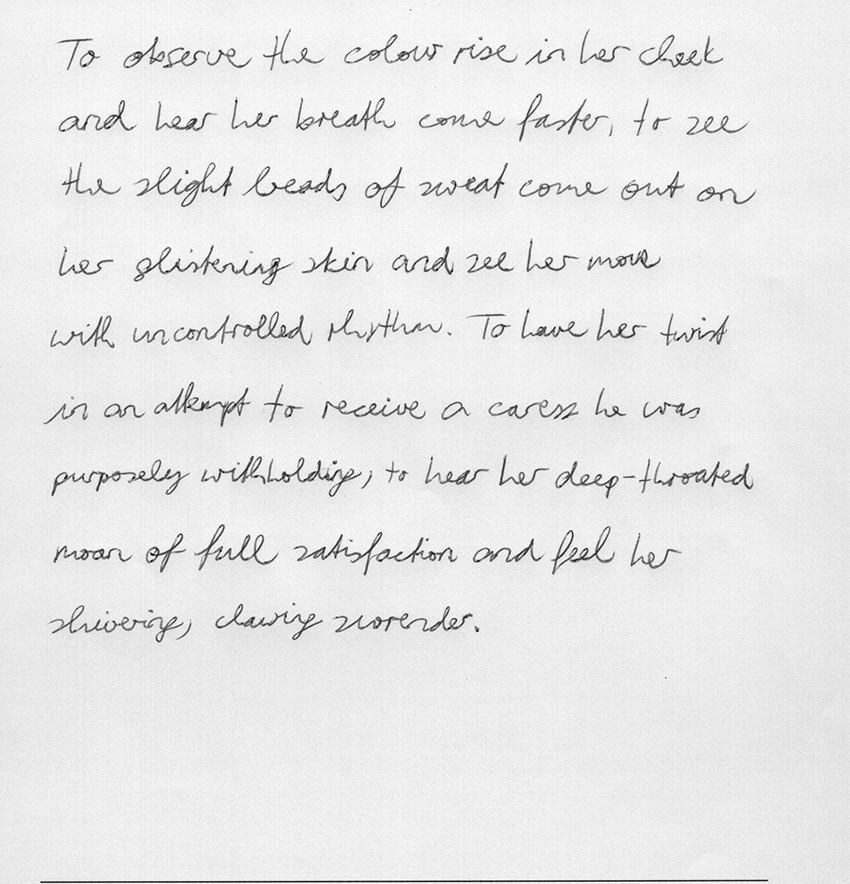 To observe the colour rise in her cheek
and hear her breath come faster, to see
the slight beads of sweat come out on
her glistening skin and see her move
with uncontrolled rhythm. To have her twist
in an attempt to receive a caress he was
purposely withholding, to hear her deep-throated
moan of full satisfaction and feel her
shivering, clawing surrender.